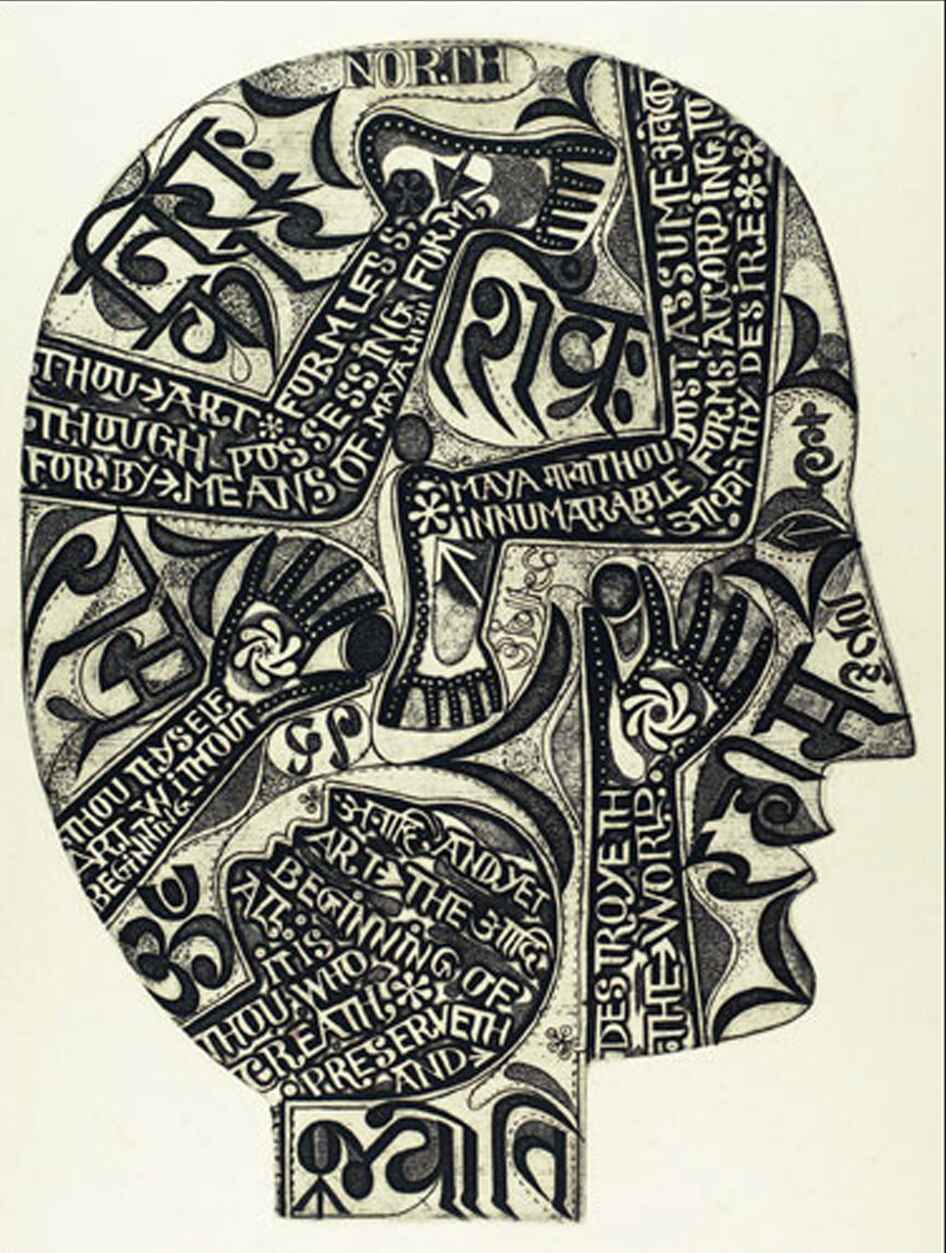 NORTH
THOU→ART*FORMLESS,
THOUGH POSSESSING FORM,
FOR BY→MEANS OF MAYA
MAYA माया THOU DOST ASSUME अनेक
INNUMARABLE FORMS ACCORDING TO
THY DESIRE**
THOU THYSELF
ART WITHOUT
BEGINNING
अनादि AND YET
ART THE आदि
BEGINNING OF
ALL: IT IS
THOU WHO
CREATH,*
PRESERVETH
AND→
DESTROYETH
THE→WORLD.
ॐ
ज्योति